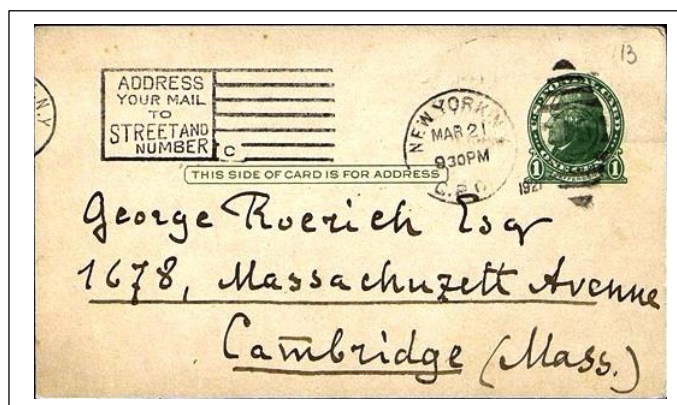 13
N.Y
ADDRESS
YOUR MAIL
TO
STREET AND
NUMBER
C
NEW YORK, N.Y.
MAR 21
930 PM
1921
THIS SIDE OF CARD IS FOR ADDRESS
1 1
George Roerich Esq
1678, Massachuzett Avenue
Cambridge (Mass.)